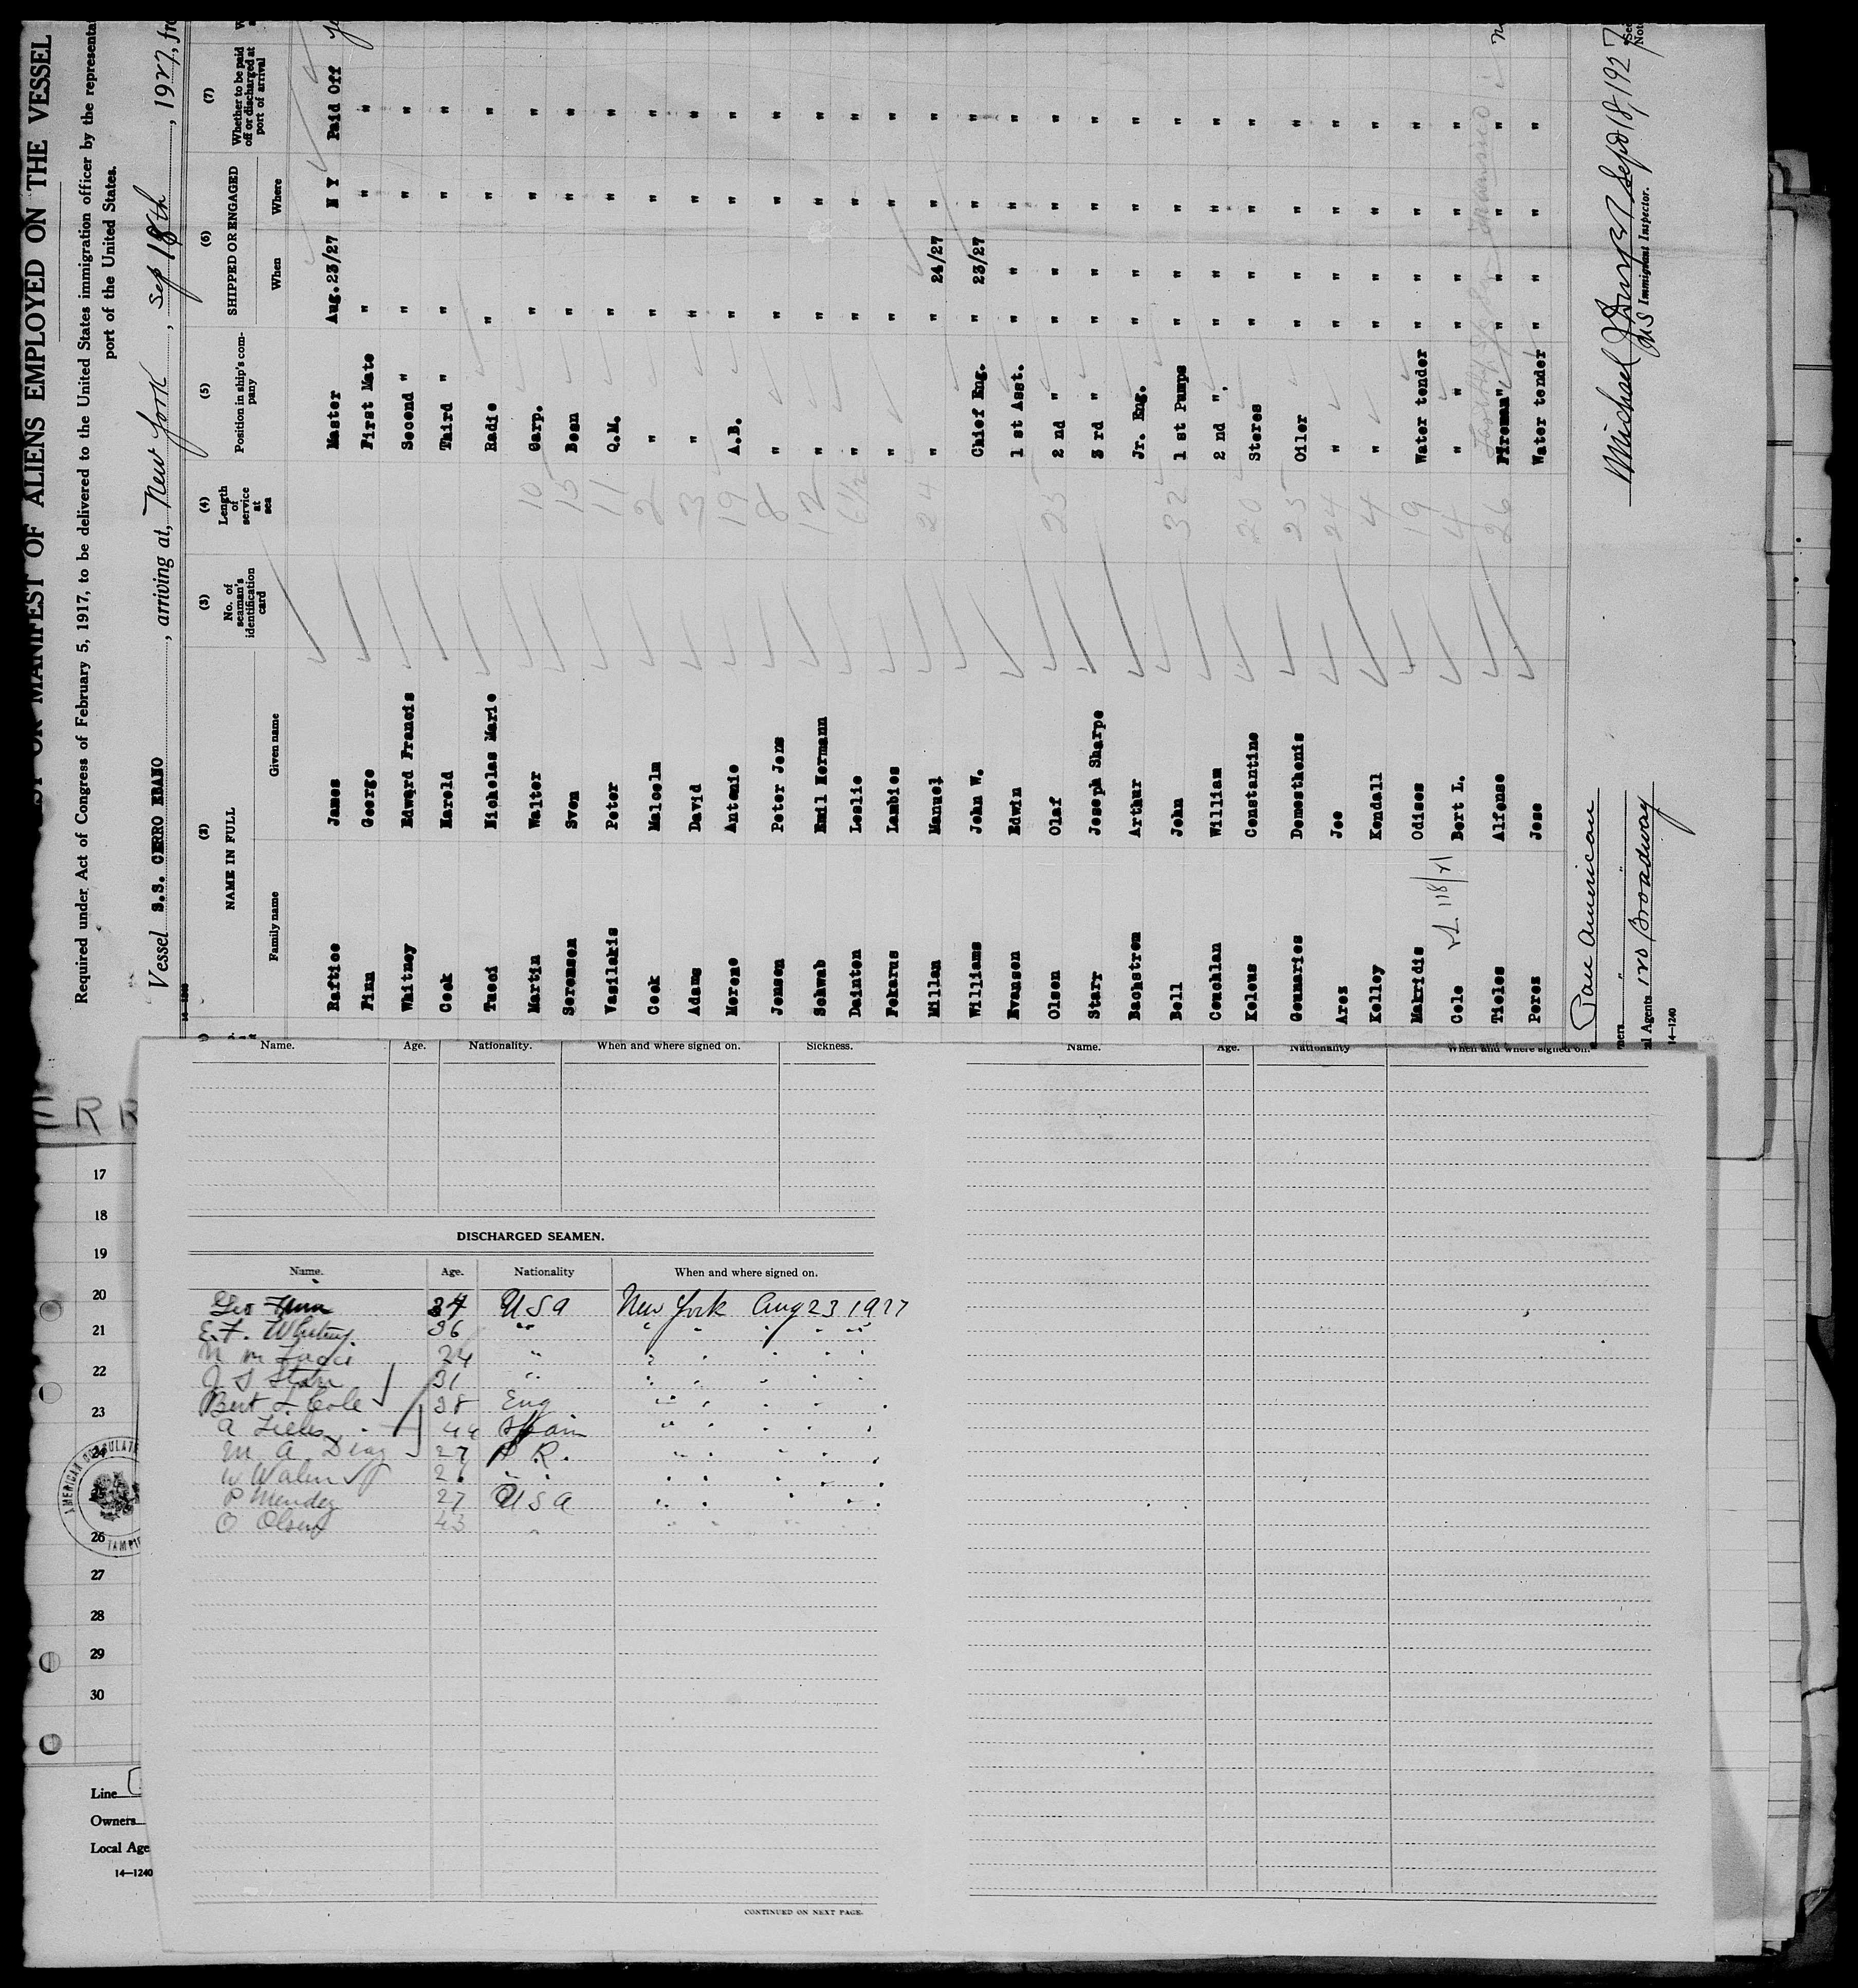 ST OR MANIFEST OF ALIENS EMPLOYED ON THE VESSEL
Required under Act of Congress of February 5, 1917, to be delivered to the United States immigration officer by the representa
port of the United States.
Vessel S.S. CERRO EBANO, arriving at, New York, Sep 18th, 1927, fr
(2) (3) (4) (5) (6) (7)
NAME IN FULL No. of seaman's identification card Length of service at sea Position in ship's company SHIPPED OR ENGAGED Whether to be paid off or discharged at port of arrival
Family name Given name When Where
Raftice James Master Aug. 23/27 N Y Paid Off
Finn George First Mate " " "
Whitney Edward Francis Second " " " "
Cook Harold Third " " " "
Tucci Nicholas Marie Radio " " "
Martin Walter 10 Carp. " " "
Sorensen Sven 15 Bosn " " "
Vasilakis Peter 11 Q.M. " " "
Cook Malcolm 2 " " " "
Adams David 3 " " " "
Moreno Antonio 19 A.B. " " "
Jensen Peter Jens 8 " " " "
Schwab Emil Hermann 12 " " " "
Dainton Leslie 6 1/2 " " " "
Pekarus Lambios " " " "
Millan Manuel 24 " " 24/27 " "
Williams John W. Chief Eng. " 23/27 " "
Evansen Edwin 1 st Asst. " " " "
Olsen Olaf 25 2 nd " " " " "
Starr Joseph Sharpe 3 rd " " " " "
Bachstrom Arthur Jr. Eng. " " " "
Bell John 32 1 st Pumps " " " "
Couchlan William 2 nd " " " " "
Koleus Constantine 20 Stores " " " "
Gounaries Demosthenis 25 Oiler " " " "
Arez Joe 24 " " " " "
Kelley Kendall 4 " " " " "
Makridis Odises 19 Water tender " " " "
Cole Bert L. 4 " " " " " "
Tieles Alfonse 26 Fireman " " " "
Perez Jose Water tender " " " "
Pan American
Agents 120 Broadway
14—1240
Michael J
Sept 18, 1927
US Immigrant Inspector.
Name. Age. Nationality. When and where signed on. Sickness.
DISCHARGED SEAMEN.
Name. Age. Nationality When and where signed on.
Geo Finn 34 USA New York Aug 23 1927
E. F. Whitney 36 " " " " "
N M Tucci 24 " " " " "
J S Starr 31 " " " " "
Bert L Cole 38 Eng " " " "
A Tieles 44 Spain " " " "
M A Diaz 27 P R. " " " "
W 26 " " " " "
P Mendez 27 USA " " " "
O Olsen 43 " " " " "
CONTINUED ON NEXT PAGE.
Name. Age. Nationality When and where signed on.
17
18
19
20
21
22
23
24
26
27
28
29
30
AMERICAN CONSULATE
TAMPI
Line
Owners
Local Age
14—1240